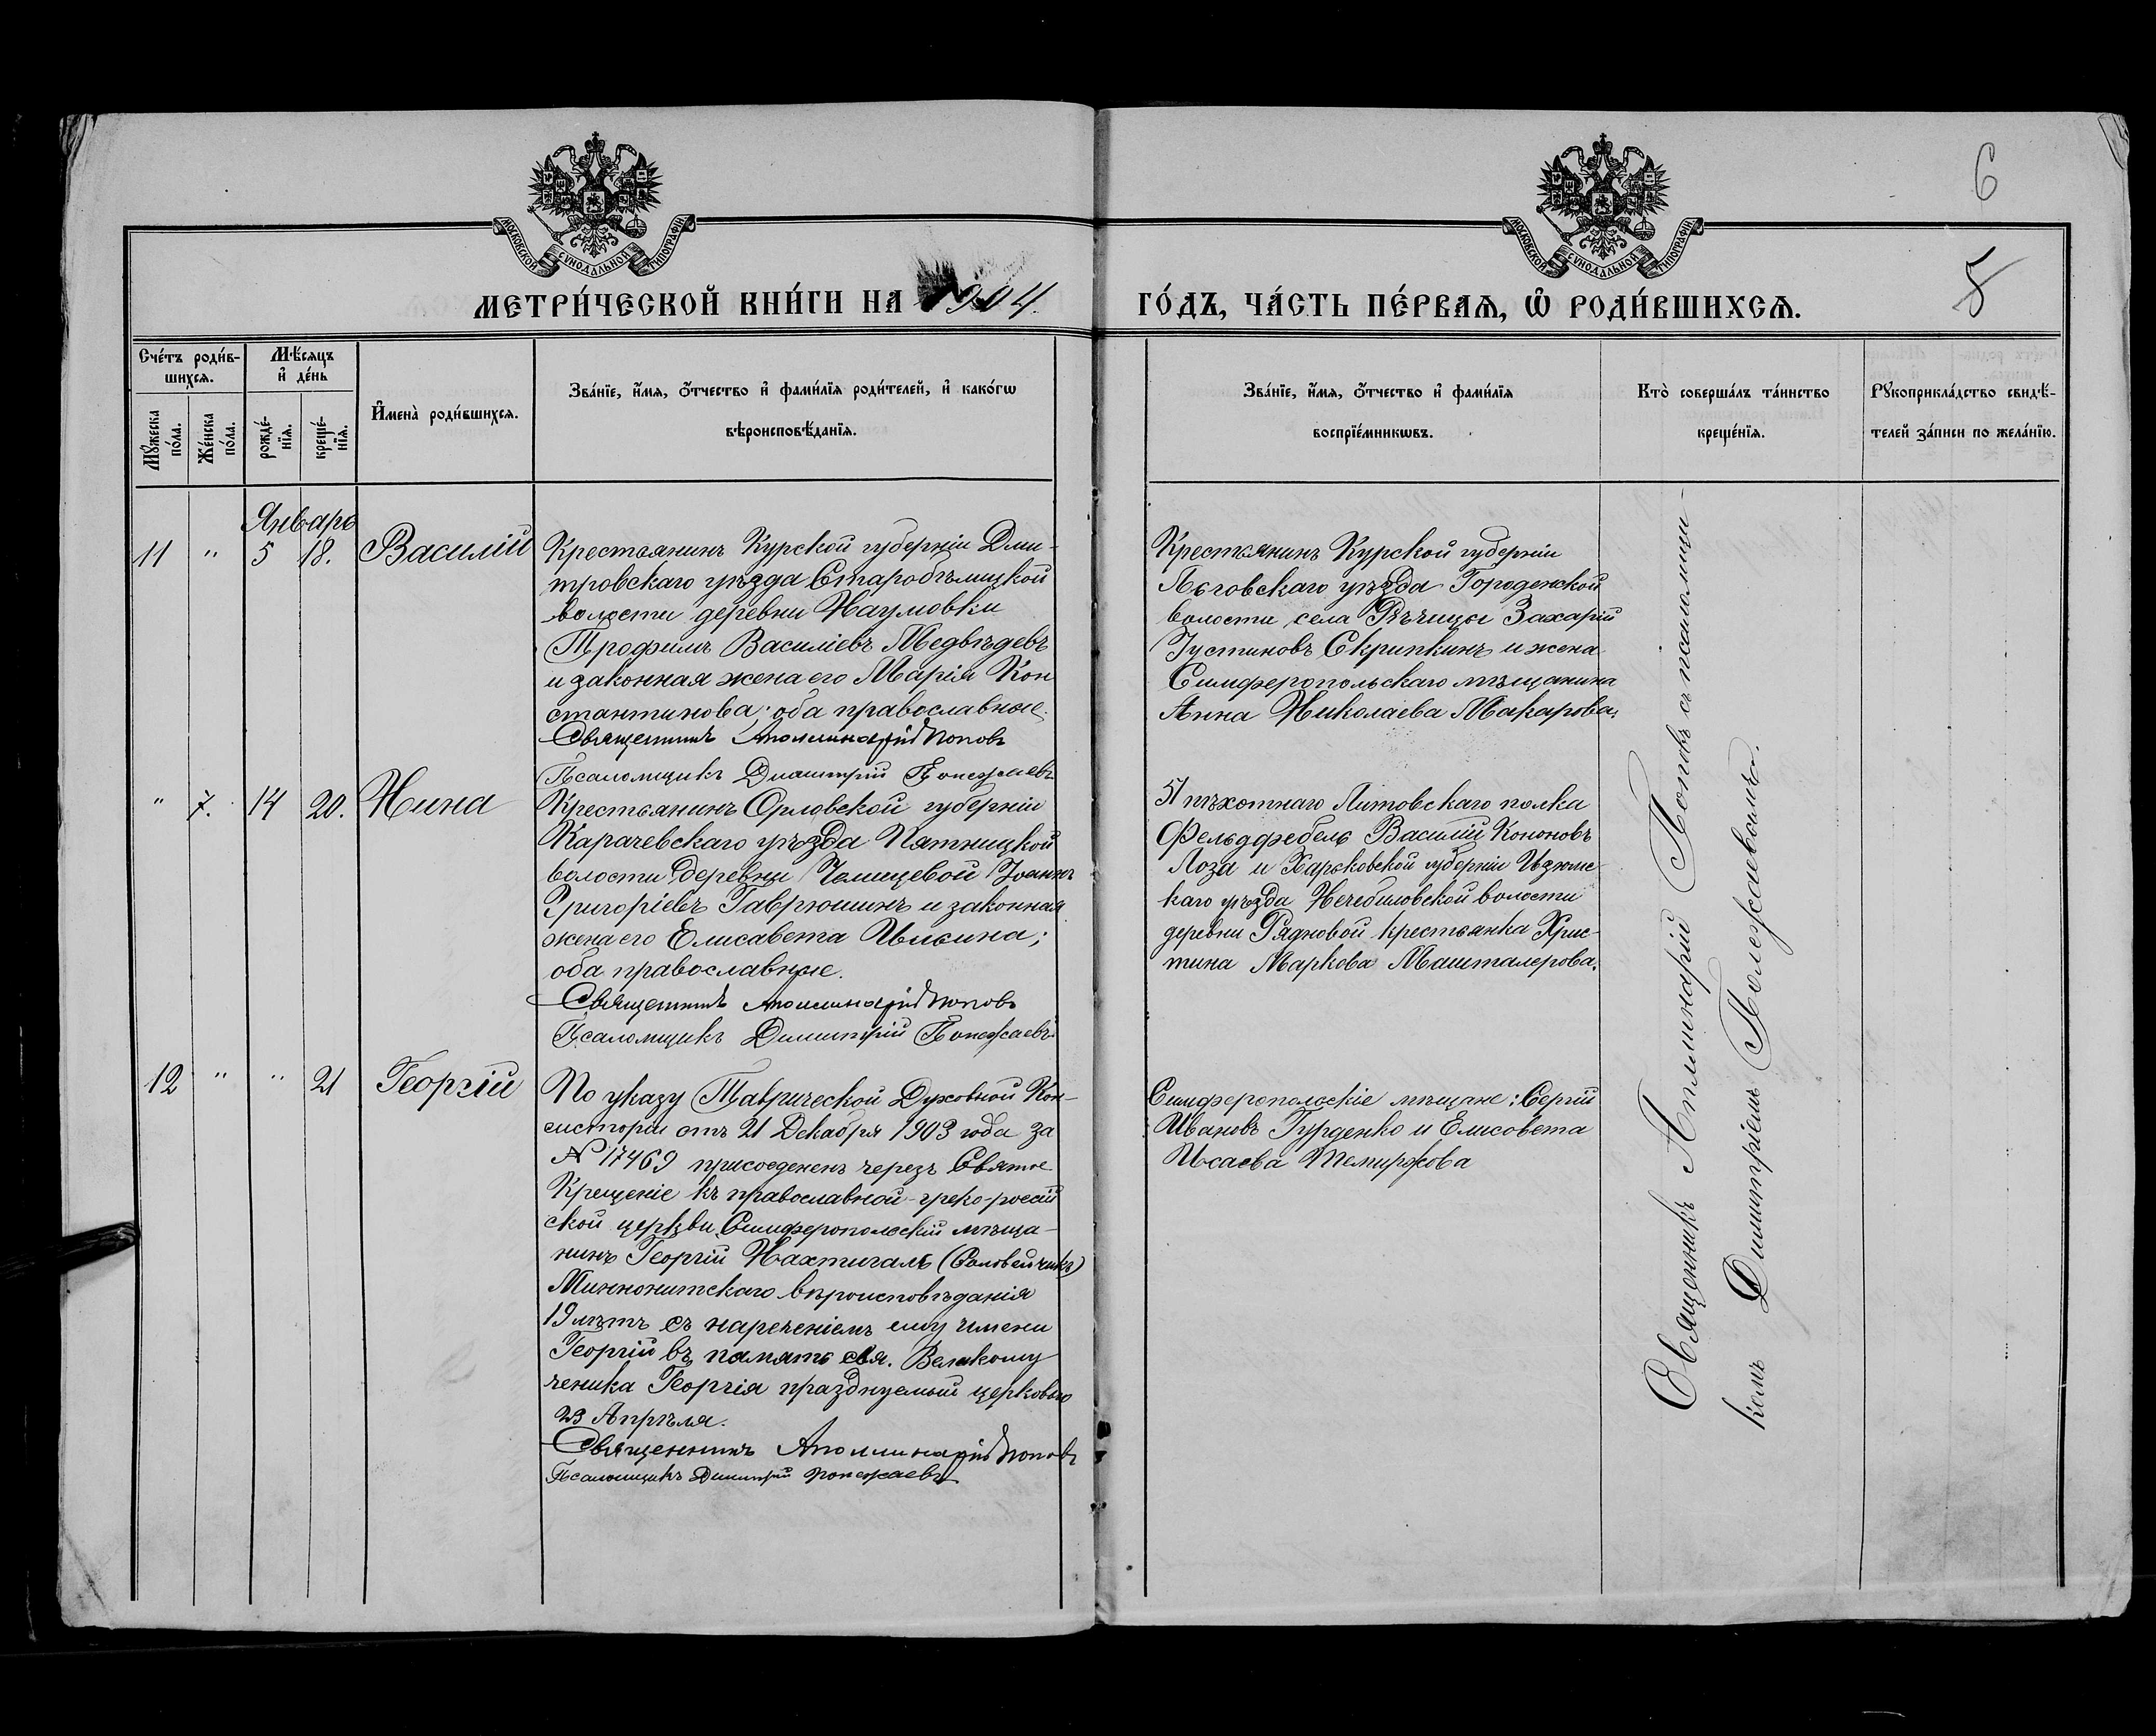 6
МОСКОВСКОЙ СѴНОДАЛЬНОЙ ТИПОГРАФІИ
МОСКОВСКОЙ СѴНОДАЛЬНОЙ ТИПОГРАФІИ
5
МЕТРИ́ЧЕСКОЙ КНИ́ГИ НА 1904.
ГО́ДЪ, ЧА́СТЬ ПЕ́РВАѦ, Ѡ҆ РОДИ́ВШИХСѦ.
Сче́тъ роди́в-
шихсѧ.
Мѣ́сѧцъ
и҆ де́нь
Мꙋ́жеска
по́ла.
Же́нска
по́ла.
рожде́-
нїѧ.
креще́-
нїѧ.
И҆мена̀ роди́вшихсѧ.
Зва́нїе, и҆́мѧ, ѻ҆́тчество и҆ фами́лїѧ роди́телей, и҆ како́гѡ
вѣроисповѣ́данїѧ.
Зва́нїе, и҆́мѧ, ѻ҆́тчество и҆ фами́лїѧ
воспрїе́мникѡвъ.
Кто̀ соверша́лъ та́инство
креще́нїѧ.
Рꙋкоприкла́дство свидѣ́-
телей за́писи по жела́нїю.
Январь
11 " 5 18. Василій
Крестьянинъ Курской губерніи Дми-
тровскаго уѣзда Старобѣлицкой
волости деревни Наумовки
Трофимъ Василіевъ Медвѣдевъ
и законная жена его Марія Кон
стантинова; оба православные.
Священникъ Аполлинарій Поповъ
Псаломщикъ Димитрій Полежаевъ
Крестьянинъ Курской губерніи
Льговскаго уѣзда Городенской
волости села Рѣчицы Захарій
Іустиновъ Скрипкинъ и жена
Симферопольскаго мѣщанина
Анна Николаева Макарова.
" 7. 14 20. Нина
Крестьянинъ Орловской губерніи
Карачевскаго уѣзда Пятницкой
волости деревни Челищевой Іоаннъ
Григоріевъ Гаврюшинъ и законная
жена его Елисавета Ильина;
оба православные.
Священникъ Аполлинарій Поповъ
Псаломщикъ Димитрій Полежаевъ
51 пѣхотнаго Литовскаго полка
Фельдфебель Василій Кононовъ
Лоза и Харьковской губерніи Изюмс
каго уѣзда волости
деревни крестьянка Хрис-
тина Маркова Машталерова.
12 " " 21 Георгій
По указу Таврической Духовной Кон-
систоріи отъ 21 Декабря 1903 года за
№ 17469 присоедененъ черезъ Святое
Крещеніе къ православной-греко-россій
ской церкви Симферопольскій мѣща-
нинъ Георгій Нахтигаль (Соловейчикъ)
Миннонитскаго вѣроисповѣданія
19 лѣтъ съ нареченіемъ ему имени
Георгій въ память свя. Великому
ченика Георгія празднуемый церковью
23 Апрѣля.
Священникъ Аполлинарій Поповъ
Псаломщикъ Димитрій Полежаевъ
Симферопольскіе мѣщане: Сергій
Ивановъ Гурденко и Елисавета
Исаева Темиржова
Священникъ Аполлинарій Поповъ съ псаломщи-
комъ Димитріемъ Полежаевомъ.